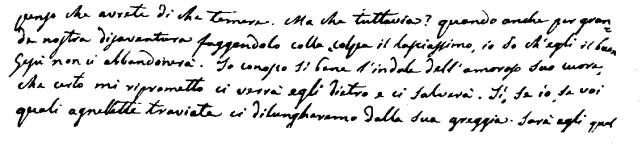 penso che avrete di che temere. Ma che tuttavia? quando anche per gran=
de nostra disavventura fuggendolo colla colpa il lasciassimo, io so ch'egli il buon
Gesù non ci abbandonerà. Io conosco sì bene l'indole dell'amoroso suo cuore,
che certo mi riprometto ci verrà egli dietro e ci salverà. Sì, se io, se voi
quali agnellette traviate ci dilungheremo dalla sua greggia. Sarà egli quel